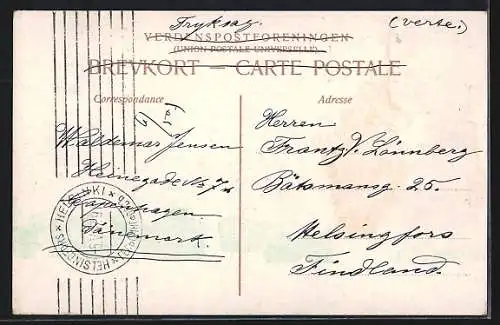 Tryksag.
(verte.)
VERDENSPOSTFORENINGEN
(UNION POSTALE UNIVERSELLE)
BREVKORT — CARTE POSTALE
Correspondance
Adresse
Waldemar Jensen
Heinegade No 7
Kopenhagen.
Dänemark.
Herren
Frantz V. Lönnberg
Båtsmansg. 25.
Helsingfors
Findland.
HELSINKI HELSINGFORS